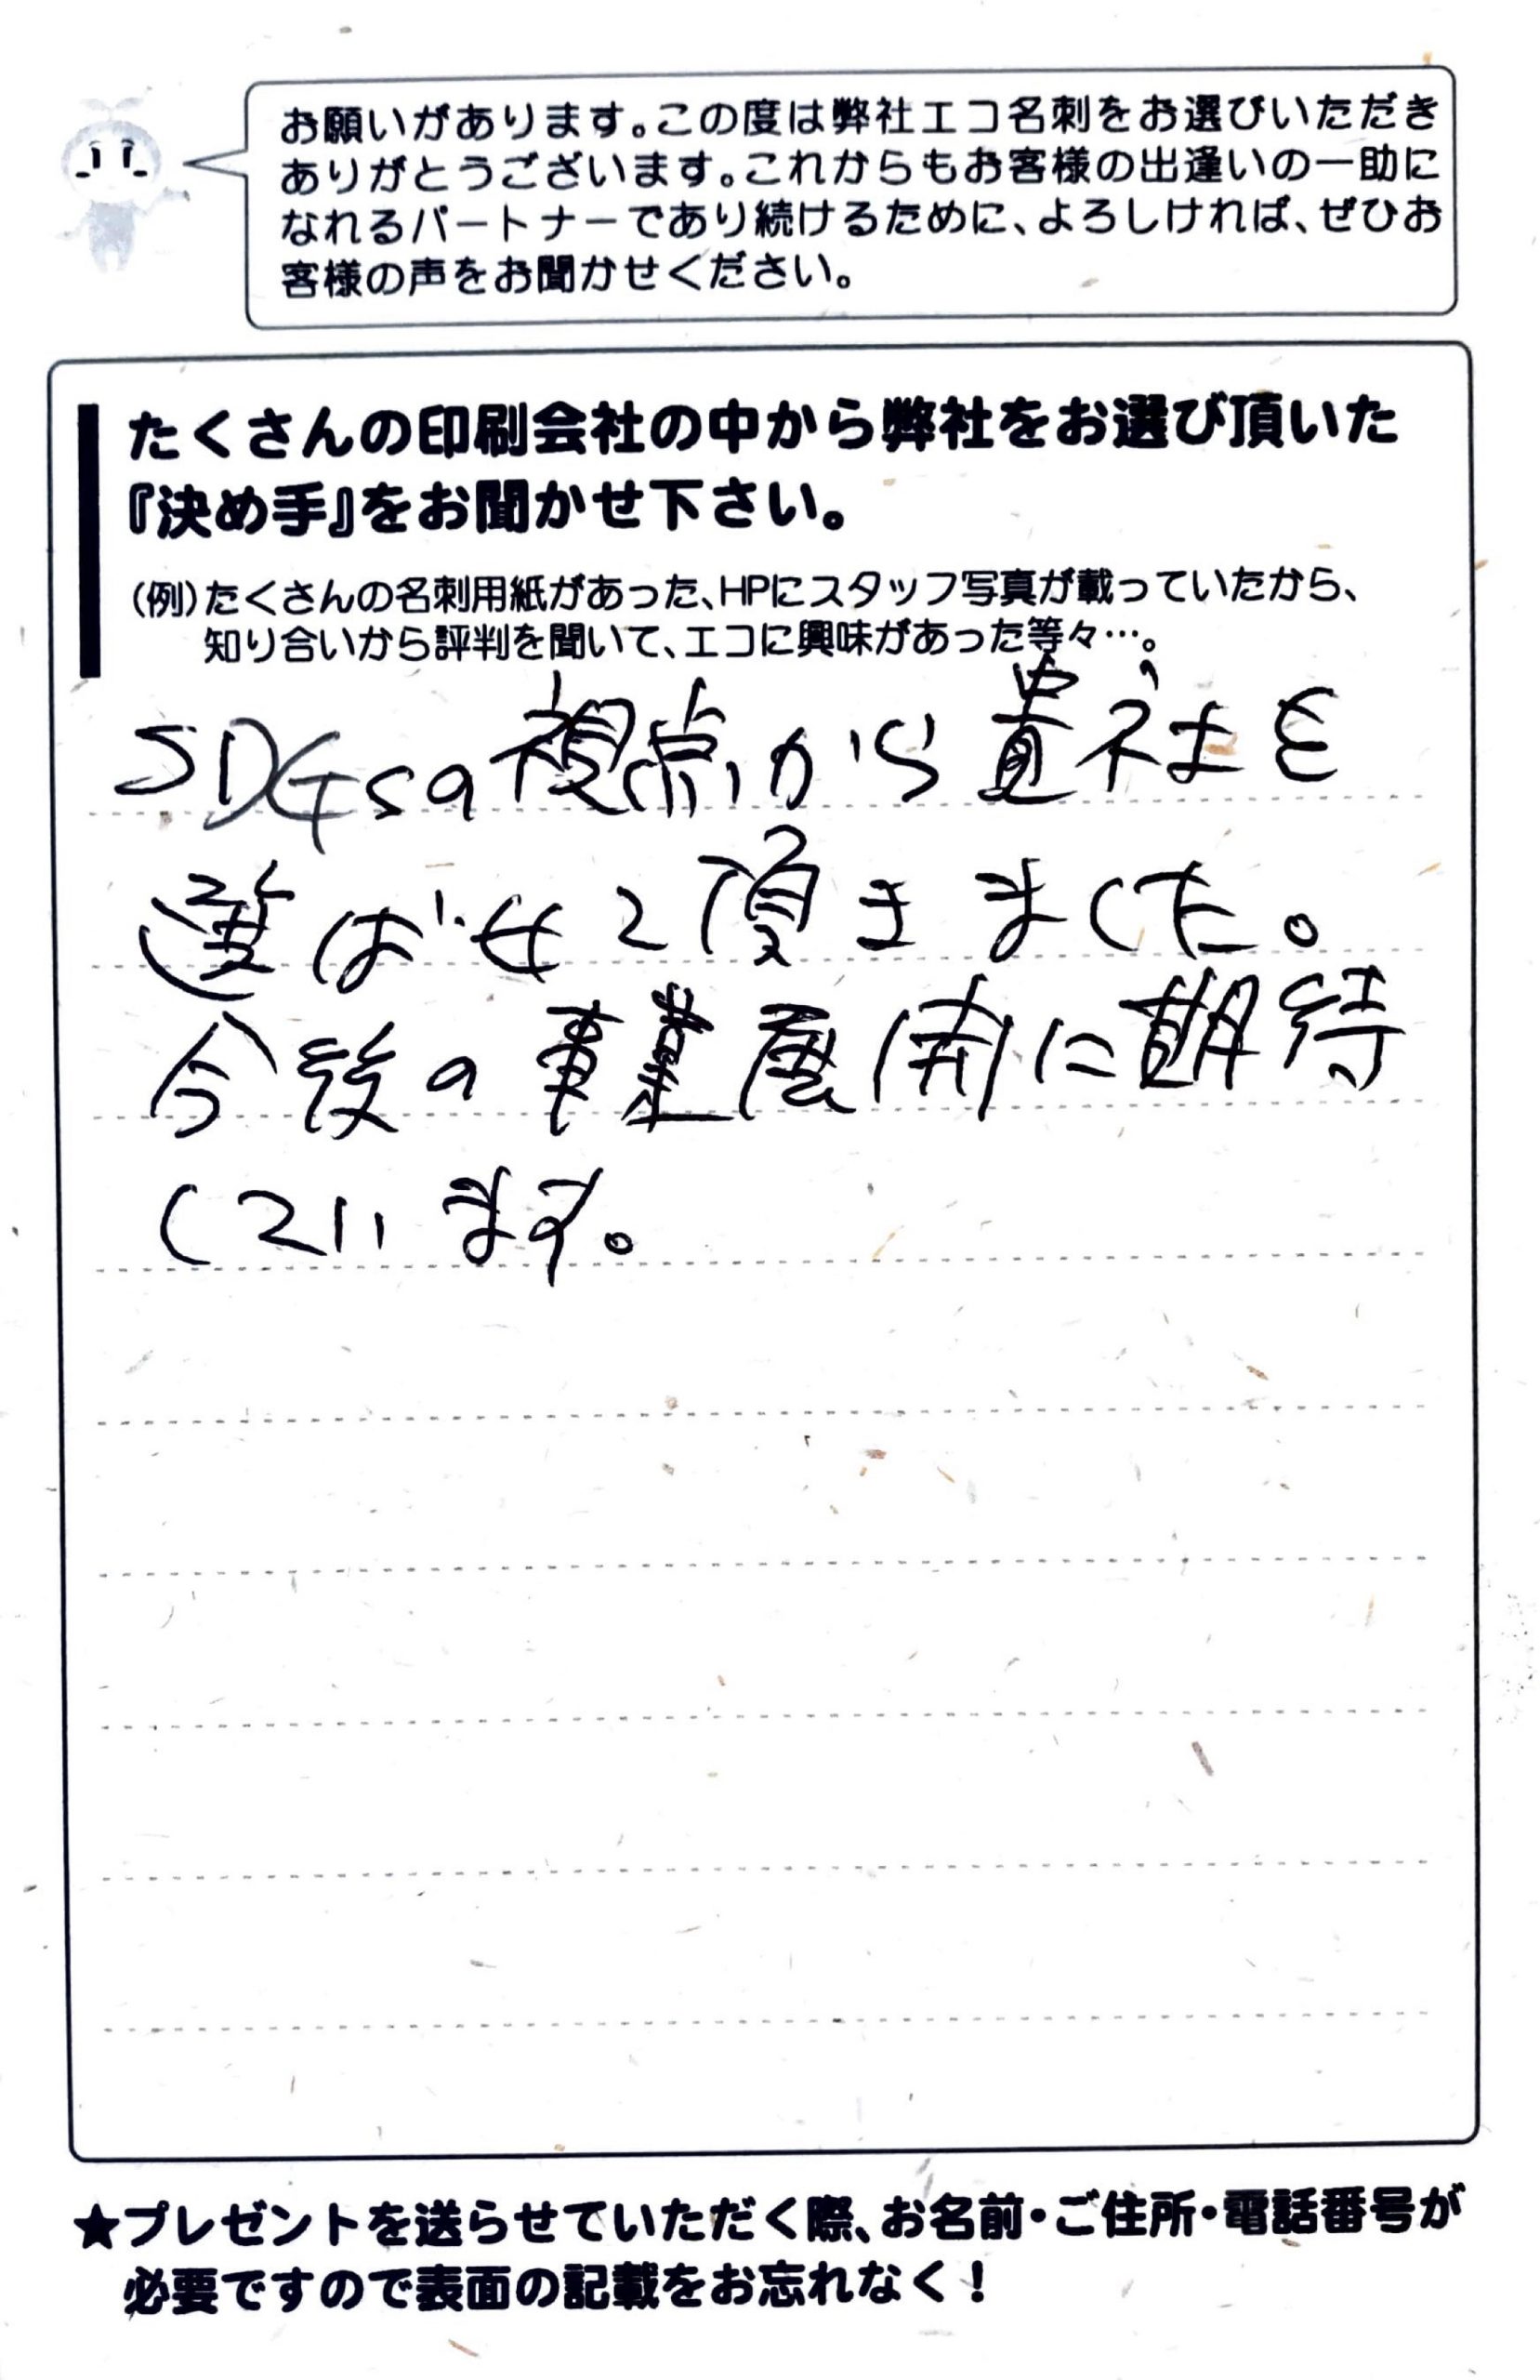 お願いがあります。この度は弊社エコ名刺をお選びいただき
ありがとうございます。これからもお客様の出逢いの一助に
なれるパートナーであり続けるために、よろしければ、ぜひお
客様の声をお聞かせください。
たくさんの印刷会社の中から弊社をお選び頂いた
『決め手』をお聞かせ下さい。
(例)たくさんの名刺用紙があった、HPにスタッフ写真が載っていたから、
知り合いから評判を聞いて、エコに興味があった等々…。
SDGsの視点から貴社を
選ばせて頂きました。
今後の事業展開に期待
しています。
★プレゼントを送らせていただく際、お名前・ご住所・電話番号が
必要ですので表面の記載をお忘れなく!